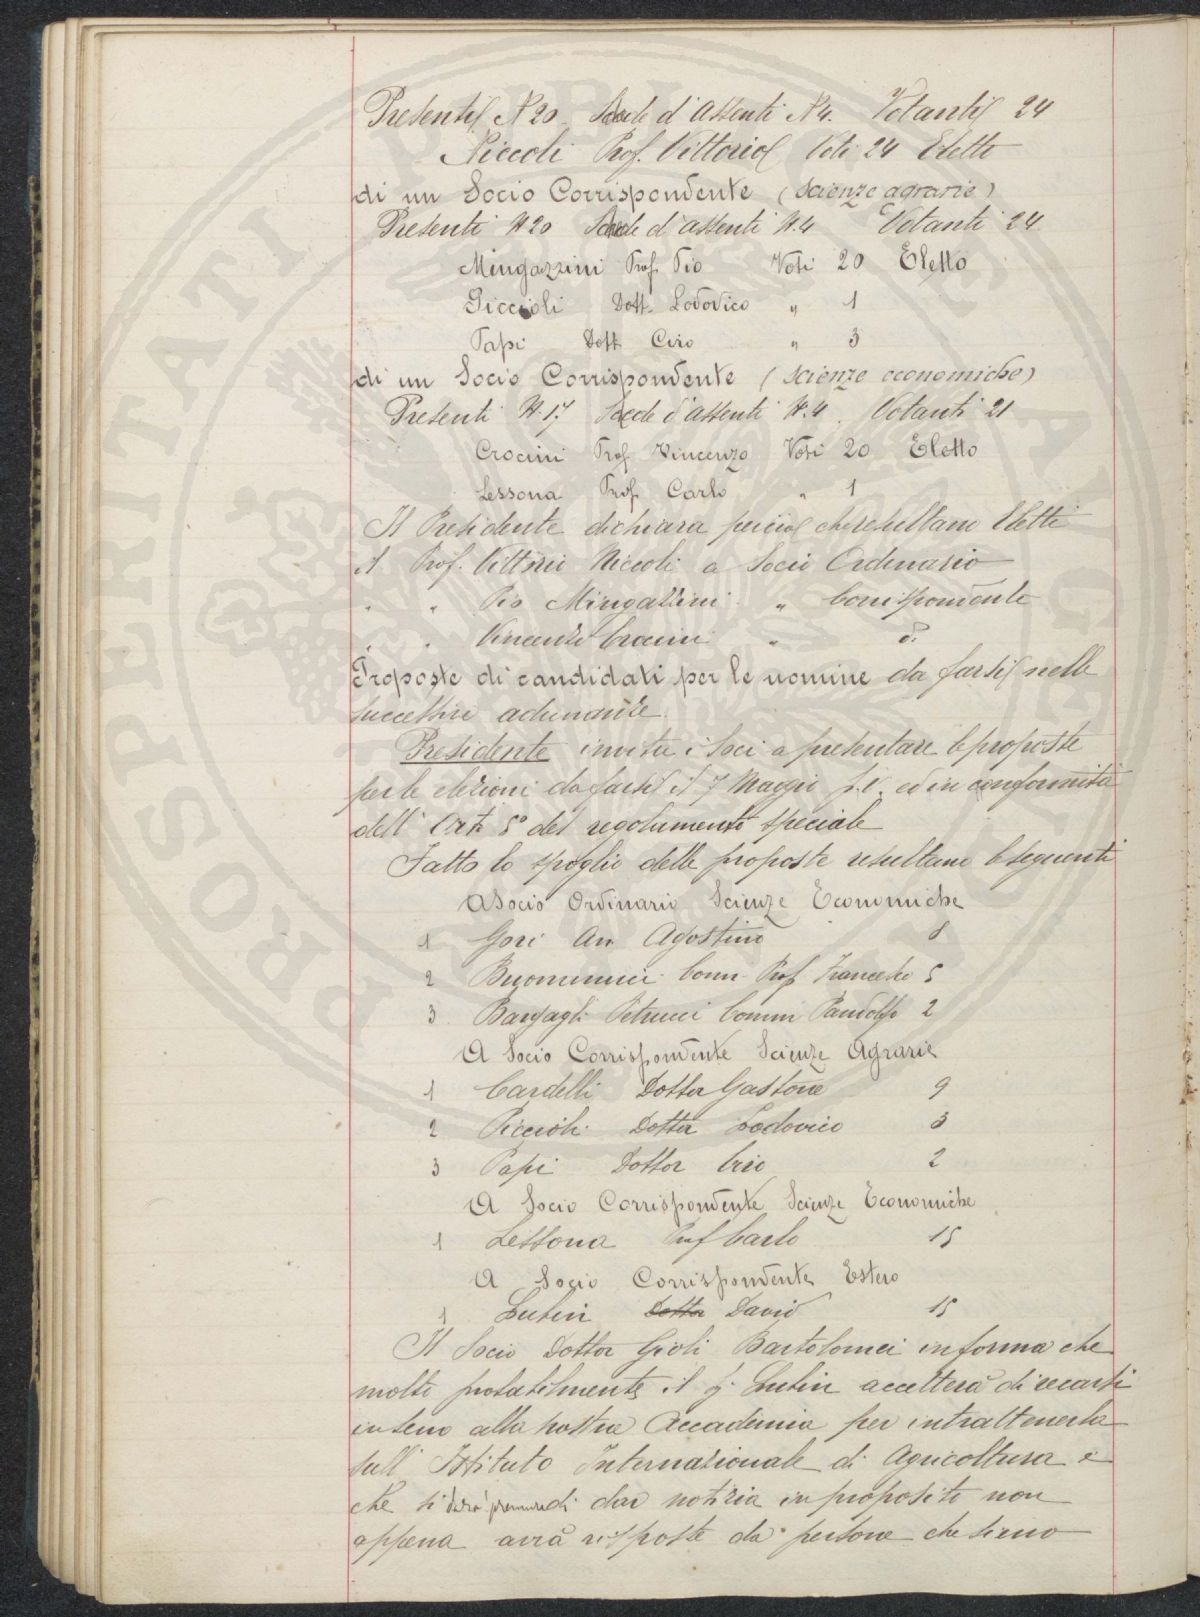 Presenti N 20 Schede d'Assenti N 4. Votanti 24
Niccoli Prof. Vittorio Voti 24 Eletto
di un Socio Corrispondente (Scienze agrarie)
Presenti N 20 Schede d'assenti N. 4 Votanti 24
Mingazzini Prof. Pio Voti 20 Eletto
Piccioli Dott. Lodovico " 1
Papi Dott Ciro " 3
di un Socio Corrispondente (Scienze economiche)
Presenti N. 17 Schede d'assenti N. 4 Votanti 21
Crocini Prof Vincenzo Voti 20 Eletto
Lessona Prof. Carlo " 1
Il Presidente dichiara perciò che resultano Eletti
il Prof. Vittorio Niccoli a Socio Ordinario
" " Pio Mingazzini " Corrispondente
" " Vincenzo Crocini " d.
Proposte di candidati per le nomine da farsi nelle
successive adunanze.
Presidente invita i Soci a presentare le proposte
per le elezioni da farsi il 7 Maggio p.v. ed in conformità
dell'Art. 5° del regolamento speciale
Fatto lo spoglio delle proposte resultano le seguenti
A Socio Ordinario Scienze Economiche
1 Gori Avv Agostino 8
2 Buonamici Comm. Prof Francesco 5
3. Bargagli Petrucci Comm Pandolfo 2
A Socio Corrispondente Scienze Agrarie
1 Cardelli Dottor Gastone 9
2 Piccioli Dottor Lodovico 3
3 Papi Dottor Ciro 2
A Socio Corrispondente Scienze Economiche
1 Lessona Prof Carlo 15
A Socio Corrispondente Estero
1 Lubin Dottor David 15
Il Socio Dottor Gioli Bartolomei informa che
molto probabilmente il S. Lubin accetterà di recarsi
in seno alla nostra Accademia per intrattenerla
sull'Istituto Internazionale di Agricoltura e
che si darà premura di dar notizia in proposito non
appena avrà risposte da persone che sieno
PROSPERITATI PUBLICAE AUGENDAE